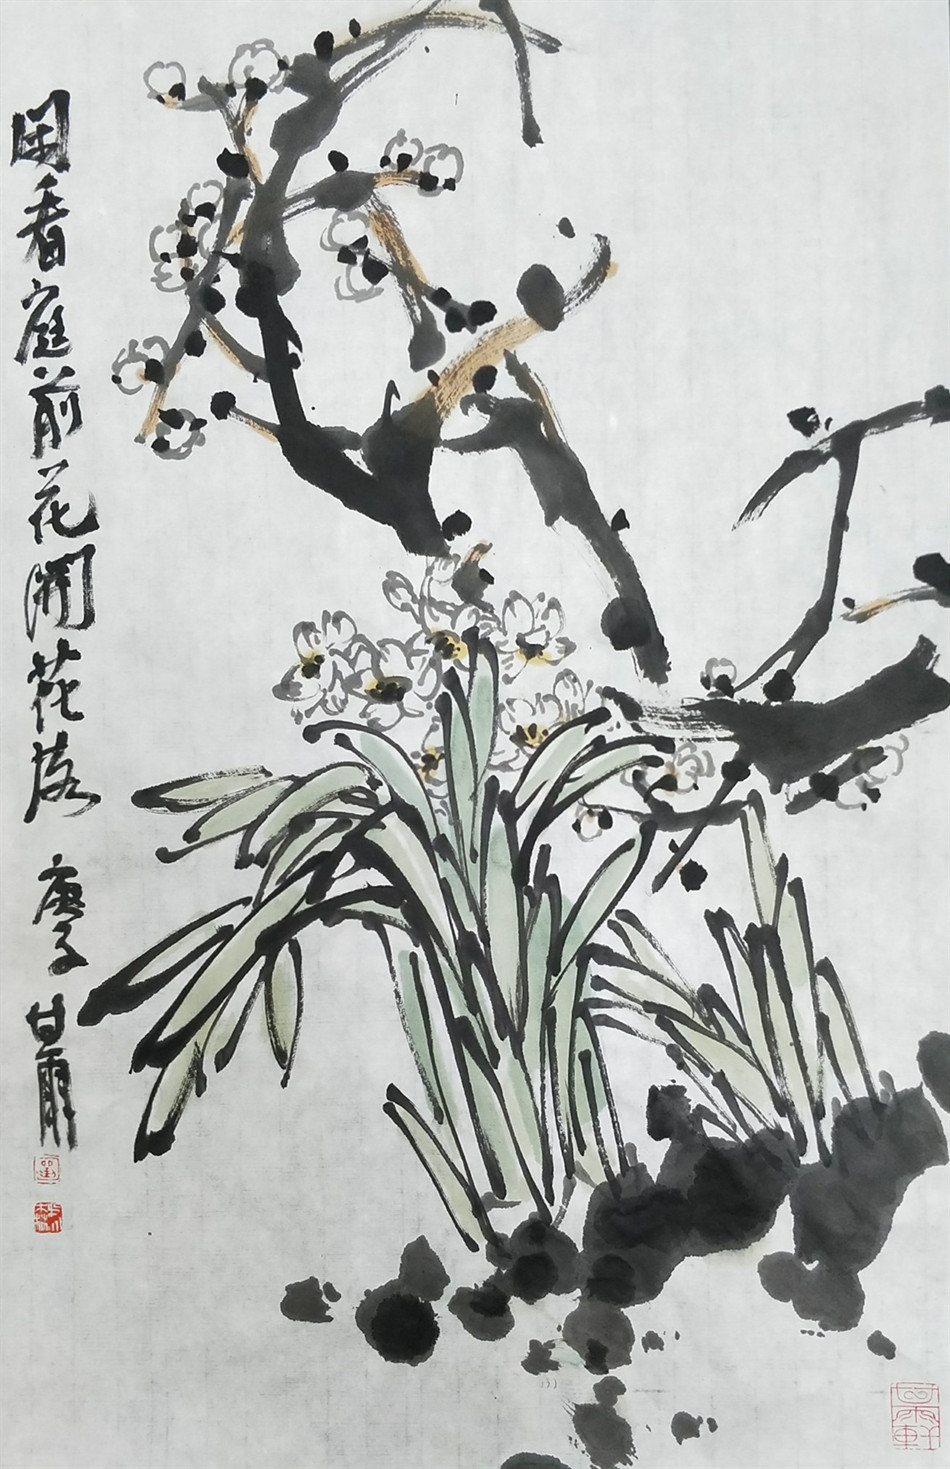 闲看庭前花開花落
庚子 甘雨